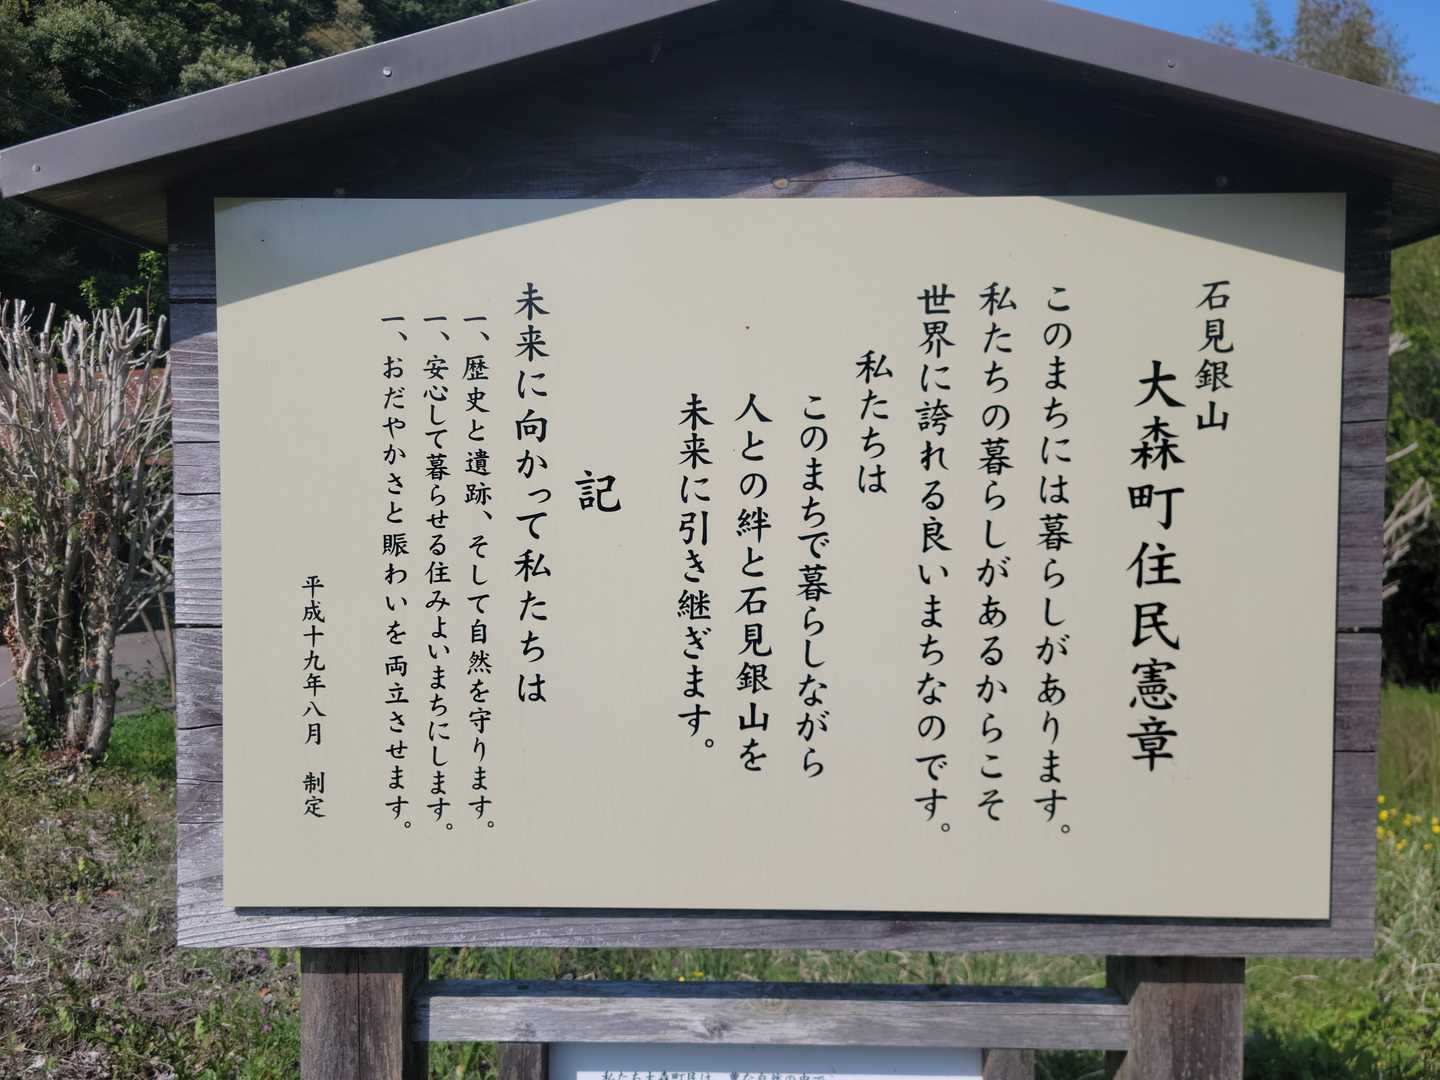 石見銀山
大森町住民憲章
このまちには暮らしがあります。
私たちの暮らしがあるからこそ
世界に誇れる良いまちなのです。
私たちは
このまちで暮らしながら
人との絆と石見銀山を
未来に引き継ぎます。
記
未来に向かって私たちは
一、歴史と遺跡、そして自然を守ります。
一、安心して暮らせる住みよいまちにします。
一、おだやかさと賑わいを両立させます。
平成十九年八月　制定